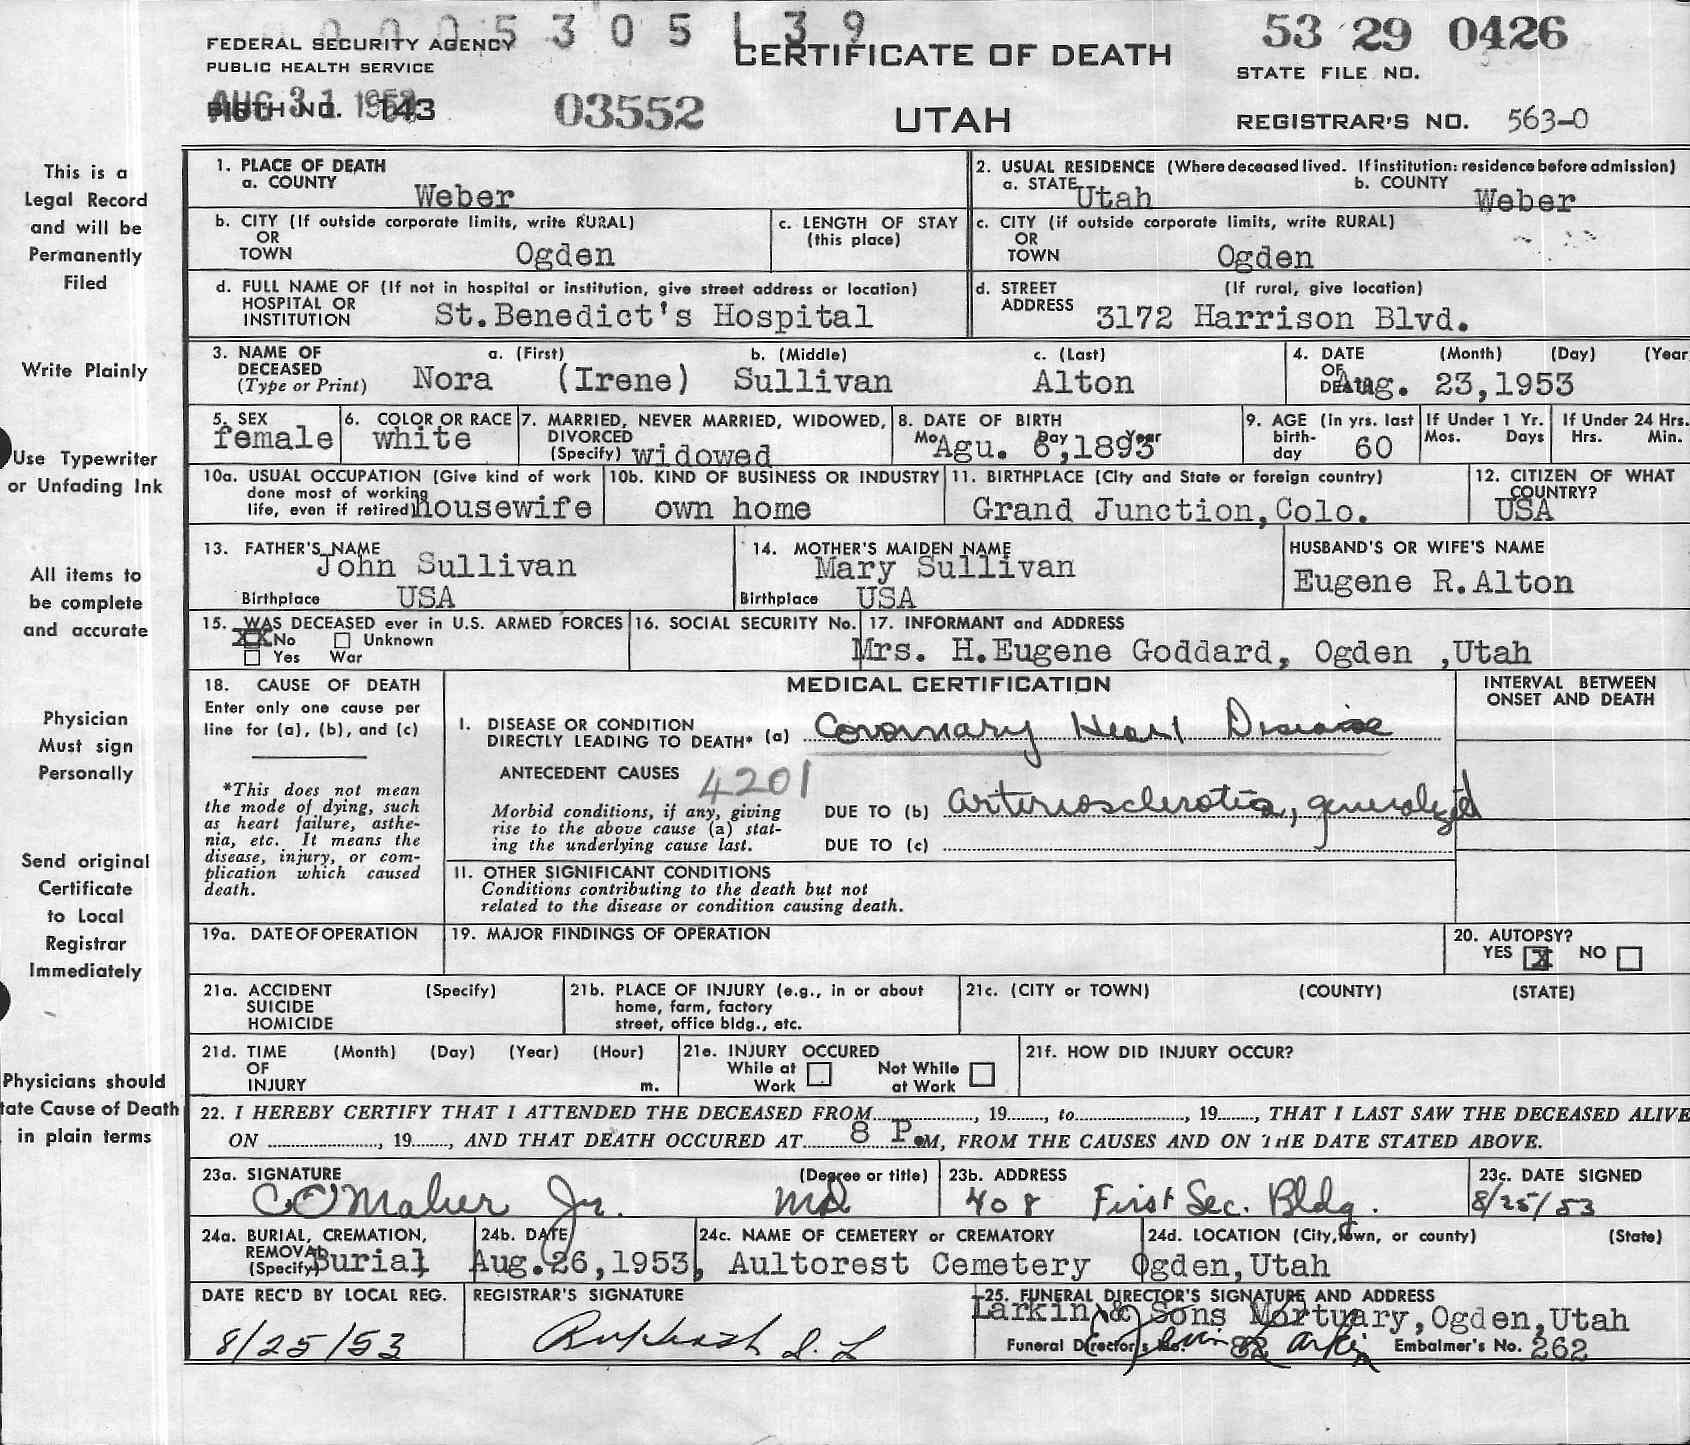 0005305139
FEDERAL SECURITY AGENCY
PUBLIC HEALTH SERVICE
CERTIFICATE OF DEATH
53 29 0426
STATE FILE NO.
BIRTH NO. 143
AUG 31 1953
03552
UTAH
REGISTRAR'S NO. 563-0
This is a
Legal Record
and will be
Permanently
Filed
Write Plainly
Use Typewriter
or Unfading Ink
All items to
be complete
and accurate
Physician
Must sign
Personally
Send original
Certificate
to Local
Registrar
Immediately
Physicians should
tate Cause of Death
in plain terms
1. PLACE OF DEATH
a. COUNTY Weber
2. USUAL RESIDENCE (Where deceased lived. If institution: residence before admission)
a. STATE Utah b. COUNTY Weber
b. CITY (If outside corporate limits, write RURAL)
OR
TOWN Ogden
c. LENGTH OF STAY
(this place)
c. CITY (if outside corporate limits, write RURAL)
OR
TOWN Ogden
d. FULL NAME OF (If not in hospital or institution, give street address or location)
HOSPITAL OR
INSTITUTION St.Benedict's Hospital
d. STREET (If rural, give location)
ADDRESS 3172 Harrison Blvd.
3. NAME OF a. (First) b. (Middle) c. (Last)
DECEASED
(Type or Print) Nora (Irene) Sullivan Alton
4. DATE (Month) (Day) (Year
OF
DEATH Aug. 23,1953
5. SEX
female
6. COLOR OR RACE
white
7. MARRIED, NEVER MARRIED, WIDOWED,
DIVORCED
(Specify) widowed
8. DATE OF BIRTH
Mo. Day Year
Agu. 6,1893
9. AGE (in yrs. last
birth-
day 60
If Under 1 Yr.
Mos. Days
If Under 24 Hrs.
Hrs. Min.
10a. USUAL OCCUPATION (Give kind of work
done most of working
life, even if retired) housewife
10b. KIND OF BUSINESS OR INDUSTRY
own home
11. BIRTHPLACE (City and State or foreign country)
Grand Junction,Colo.
12. CITIZEN OF WHAT
COUNTRY?
USA
13. FATHER'S NAME
John Sullivan
Birthplace USA
14. MOTHER'S MAIDEN NAME
Mary Sullivan
Birthplace USA
HUSBAND'S OR WIFE'S NAME
Eugene R.Alton
15. WAS DECEASED ever in U.S. ARMED FORCES
XX No Unknown
Yes War
16. SOCIAL SECURITY No.
17. INFORMANT and ADDRESS
Mrs. H.Eugene Goddard, Ogden ,Utah
18. CAUSE OF DEATH
Enter only one cause per
line for (a), (b), and (c)
*This does not mean
the mode of dying, such
as heart failure, asthe-
nia, etc. It means the
disease, injury, or com-
plication which caused
death.
MEDICAL CERTIFICATION
INTERVAL BETWEEN
ONSET AND DEATH
I. DISEASE OR CONDITION
DIRECTLY LEADING TO DEATH* (a) Coronary Heart Disease
ANTECEDENT CAUSES 4201
Morbid conditions, if any, giving
rise to the above cause (a) stat-
ing the underlying cause last.
DUE TO (b) arteriosclerotic, generalized
DUE TO (c)
II. OTHER SIGNIFICANT CONDITIONS
Conditions contributing to the death but not
related to the disease or condition causing death.
19a. DATE OF OPERATION
19. MAJOR FINDINGS OF OPERATION
20. AUTOPSY?
YES X NO
21a. ACCIDENT (Specify)
SUICIDE
HOMICIDE
21b. PLACE OF INJURY (e.g., in or about
home, farm, factory
street, office bldg., etc.
21c. (CITY or TOWN) (COUNTY) (STATE)
21d. TIME (Month) (Day) (Year) (Hour)
OF
INJURY m.
21e. INJURY OCCURED
While at Work Not While at Work
21f. HOW DID INJURY OCCUR?
22. I HEREBY CERTIFY THAT I ATTENDED THE DECEASED FROM , 19 , to , 19 , THAT I LAST SAW THE DECEASED ALIVE
ON , 19 , AND THAT DEATH OCCURED AT 8 P.M, FROM THE CAUSES AND ON THE DATE STATED ABOVE.
23a. SIGNATURE (Degree or title)
C. O Maher Jr. MD
23b. ADDRESS
408 First Sec. Bldg.
23c. DATE SIGNED
8/25/53
24a. BURIAL, CREMATION,
REMOVAL
(Specify) Burial
24b. DATE
Aug.26,1953
24c. NAME OF CEMETERY or CREMATORY
Aultorest Cemetery
24d. LOCATION (City, town, or county) (State)
Ogden,Utah
DATE REC'D BY LOCAL REG.
8/25/53
REGISTRAR'S SIGNATURE
25. FUNERAL DIRECTOR'S SIGNATURE AND ADDRESS
Larkin & Sons Mortuary,Ogden,Utah
Funeral Director's No. 82 Embalmer's No. 262